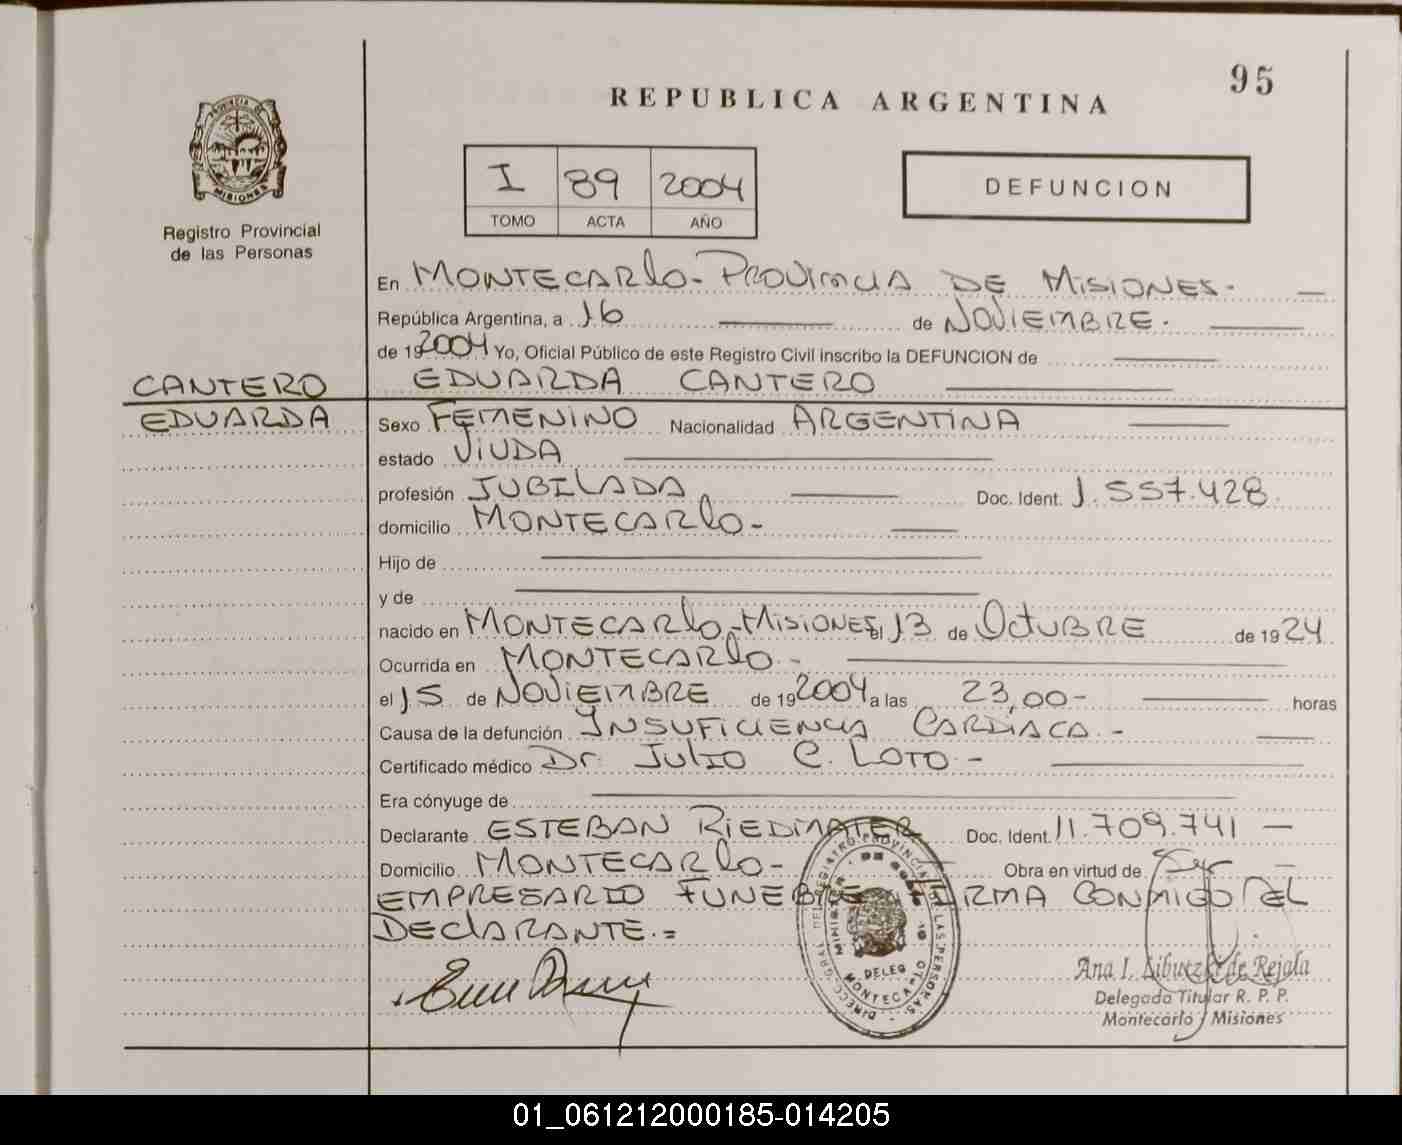 95
REPUBLICA ARGENTINA
PROVINCIA DE
MISIONES
Registro Provincial
de las Personas
I 89 2004
TOMO ACTA AÑO
DEFUNCION
En MONTECARLO - PROVINCIA DE MISIONES -
República Argentina, a 16 de NOVIEMBRE.
de 192004 Yo, Oficial Público de este Registro Civil inscribo la DEFUNCION de
CANTERO
EDUARDA
EDUARDA CANTERO
Sexo FEMENINO Nacionalidad ARGENTINA
estado VIUDA
profesión JUBILADA Doc. Ident. 1.557.428.
domicilio MONTECARLO -
Hijo de
y de
nacido en MONTECARLO - MISIONES el 13 de OCTUBRE de 1924
Ocurrida en MONTECARLO -
el 15 de NOVIEMBRE de 192004 a las 23,00 - horas
Causa de la defunción INSUFICIENCIA CARDIACA. -
Certificado médico Dr. JULIO C. LOTO -
Era cónyuge de
Declarante ESTEBAN RIEDMAIER Doc. Ident. 11.709.741 -
Domicilio MONTECARLO - Obra en virtud de Ser -
EMPRESARIO FUNEBRE FIRMA CONMIGO DEL
DECLARANTE. =
DIRECC. GRAL. DEL REGISTRO PROVINCIAL DE LAS PERSONAS
DELEG
MONTECARLO
Ana I. de Rejala
Delegada Titular R. P. P.
Montecarlo Misiones
01_061212000185-014205